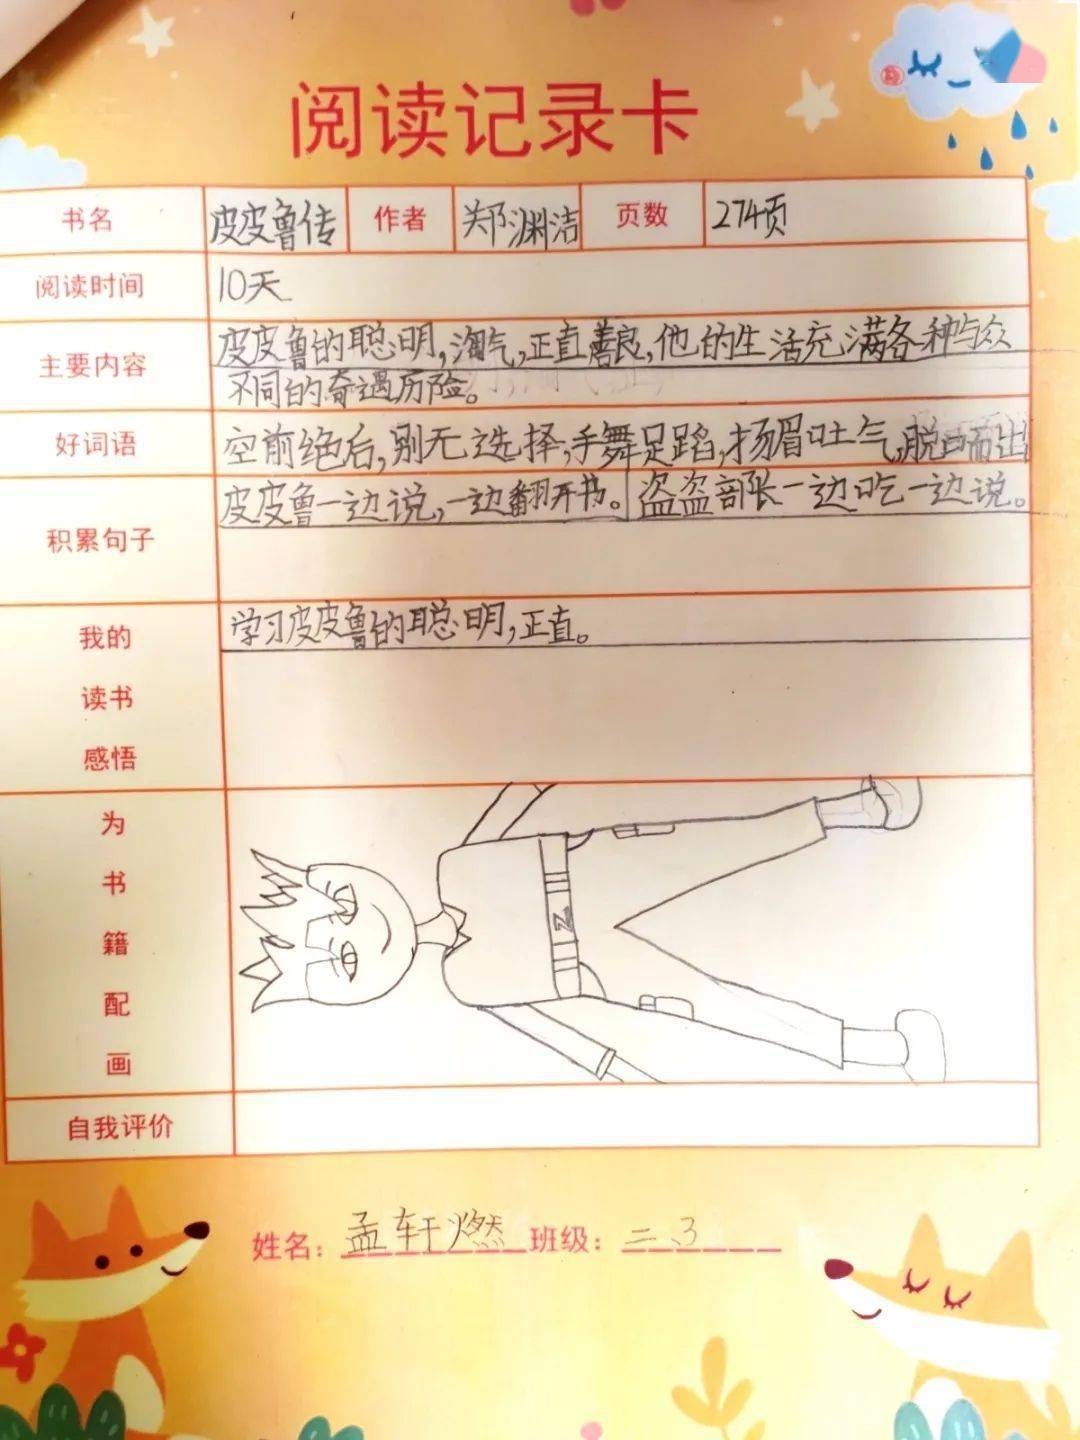 阅读记录卡
书名 皮皮鲁传 作者 郑渊洁 页数 274页
阅读时间 10天
主要内容 皮皮鲁的聪明,淘气,正直善良,他的生活充满各种与众
不同的奇遇历险。
好词语 空前绝后,别无选择,手舞足蹈,扬眉吐气,脱口而出
积累句子 皮皮鲁一边说,一边翻开书。盗盗部长一边吃一边说。
我的 学习皮皮鲁的聪明,正直。
读书
感悟
为
书
籍
配
画
Z
自我评价
姓名: 孟轩燃 班级: 二3